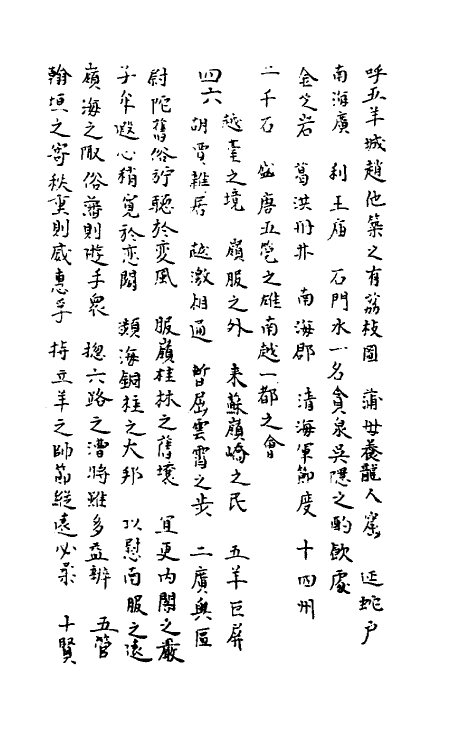 呼五羊城趙佗築之有荔枝園 蒲母養龍人窟 逃蛇户
南海廣 利王庙 石門水一名貪泉吳隱之酌飲處
金芝岩 葛洪丹井 南海郡 清海軍節度 十四州
二千石 盛唐五筦之雄南越一都之會
四六 越臺之境 嶺服之外 来蘇嶺嶠之民 五羊巨屏
胡賈雜居 越激相通 暫屈雲霄之步 二廣奥區
尉陀舊俗竚聽於变風 服嶺桂林之舊壤 宜更内閣之嚴
子牟遐心稍寬於恋闕 瀕海銅柱之大邦 以慰南服之遠
嶺海之陬俗薄則遊手衆 揔六路之漕將雖多益辨 五管
翰垣之寄秩重則威惠孚 持五羊之帥節縱遠必來 十賢